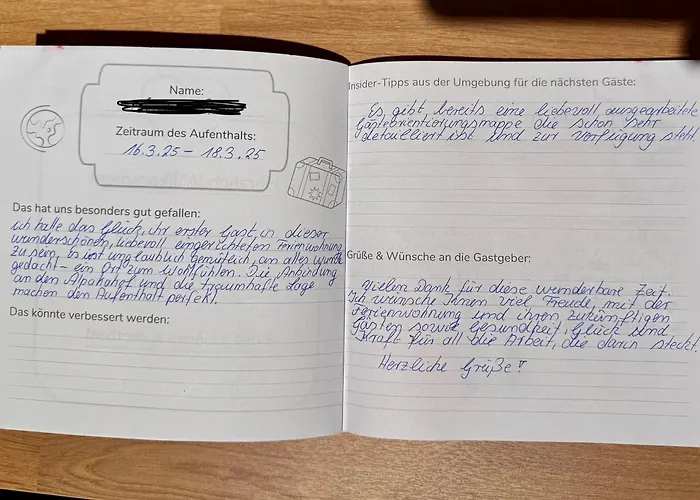 Name:
Zeitraum des Aufenthalts:
16.3.25 – 18.3.25
Das hat uns besonders gut gefallen:
ich hatte das Glück, ihr erster Gast in dieser
wunderschönen, liebevoll eingerichteten Ferienwohnung
zu sein. Es ist unglaublich gemütlich, an alles wurde
gedacht – ein Ort zum Wohlfühlen. Die Anbindung
an den Alpakahof und die traumhafte Lage
machen den Aufenthalt perfekt.
Das könnte verbessert werden:
Insider-Tipps aus der Umgebung für die nächsten Gäste:
Es gibt bereits eine liebevoll ausgearbeitete
Gästeorientierungsmappe die schon sehr
detailliert ist und zur Verfügung steht.
Grüße & Wünsche an die Gastgeber:
Vielen Dank für diese wunderbare Zeit.
Ich wünsche Ihnen viel Freude, mit der
Ferienwohnung und ihren zukünftigen
Gästen sowie Gesundheit, Glück und
Kraft für all die Arbeit, die darin steckt.
Herzliche Grüße!